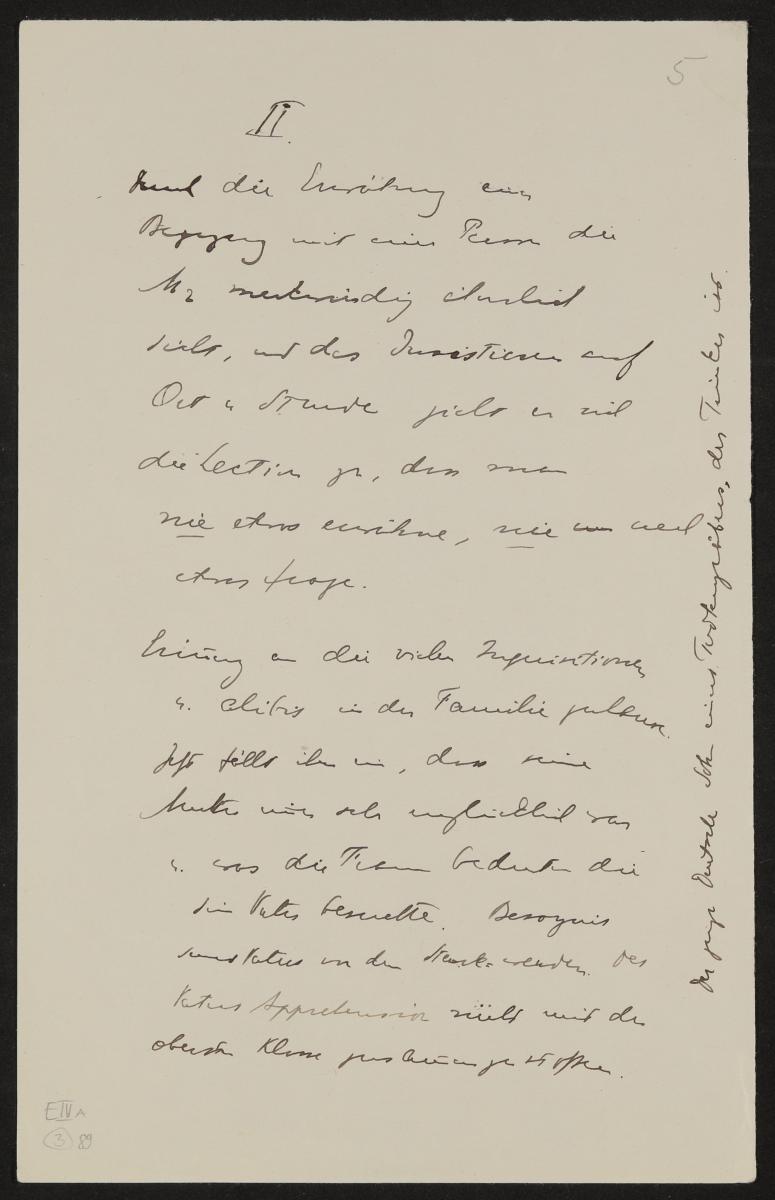 5
II.
durch die Erwähnung einer
Begegnung mit einer Person die
M2 merkwürdig ähnlich
sieht, und das Insistieren auf
Ort u Stunde zieht er sich
die Lection zu, dass man
nie etwas erwähne, nie um
etwas frage.
an die vielen Inquisitionen
u. alibis in der Familie
Jetzt fällt ihm ein, dass seine
Mutter sehr unglücklich war
u. was die Frauen bedeuten die
sein Vater besuchte. Besorgnis
seines Vaters vor dem Stark-werden. Des
Vaters Apprehension nicht mit der
obersten Klasse
Der junge Deutsche Sohn eines Todtengräbers, der Trinker ist.
EIVA
3 89